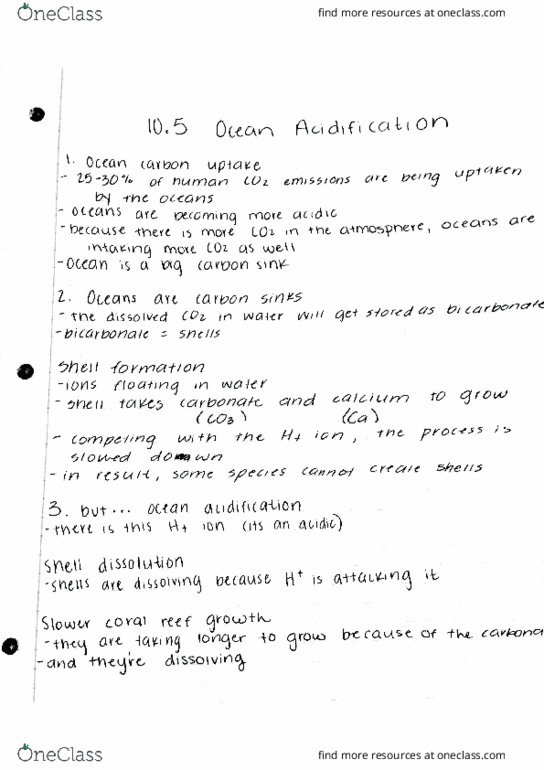 OneClass
find more resources at oneclass.com
10.5 Ocean Acidification
1. Ocean carbon uptake
- 25-30% of human CO2 emissions are being uptaken
by the oceans
- oceans are becoming more acidic
- because there is more CO2 in the atmosphere, oceans are
intaking more CO2 as well
- Ocean is a big carbon sink
2. Oceans are carbon sinks
- the dissolved CO2 in water will get stored as bicarbonate
- bicarbonate = shells
Shell formation
- ions floating in water
- shell takes carbonate and calcium to grow
(CO3) (Ca)
- competing with the H+ ion, the process is
slowed down
- in result, some species cannot create shells
3. but... ocean acidification
- there is this H+ ion (its an acidic)
Shell dissolution
- shells are dissolving because H+ is attacking it
Slower coral reef growth
- they are taking longer to grow because of the carbona
- and they're dissolving
OneClass
find more resources at oneclass.com